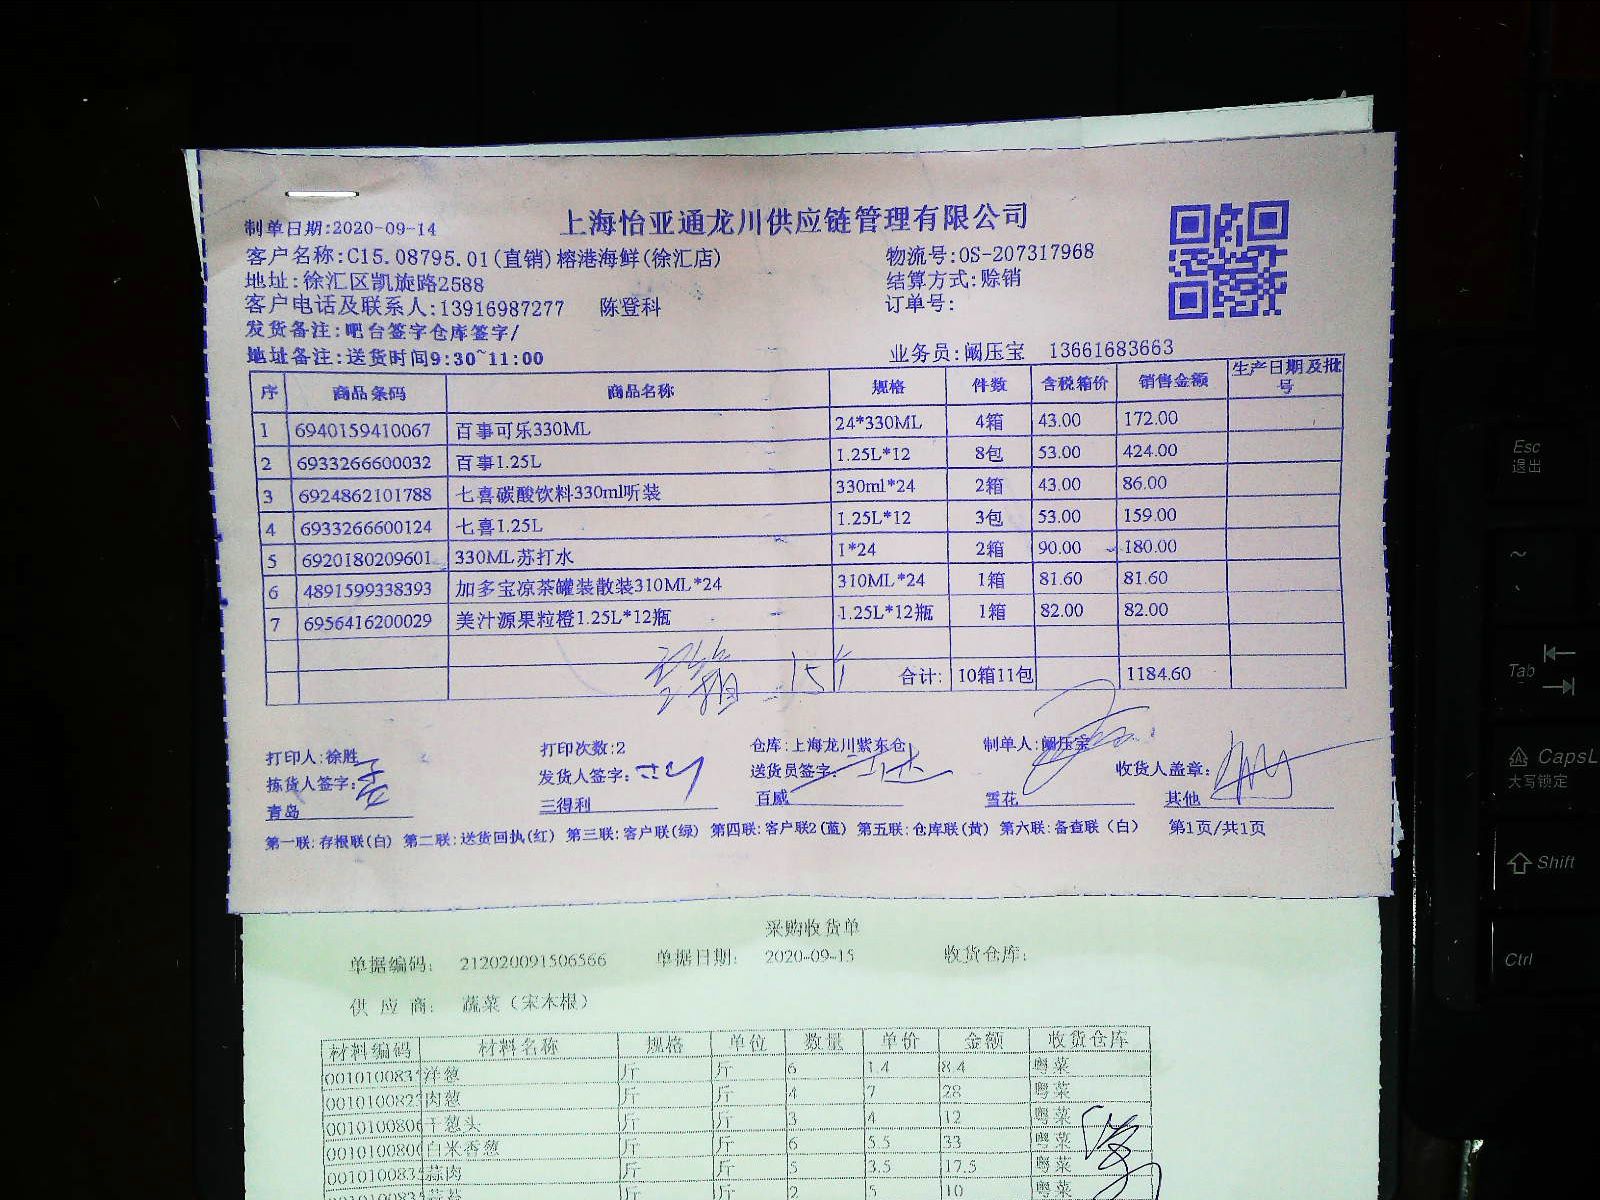 上海怡亚通龙川供应链管理有限公司
制单日期:2020-09-14
客户名称:C15.08795.01(直销)榕港海鲜(徐汇店) 物流号:OS-207317968
地址:徐汇区凯旋路2588 结算方式:赊销
客户电话及联系人:13916987277 陈登科 订单号:
发货备注:吧台签字仓库签字/
地址备注:送货时间9:30~11:00 业务员:阚压宝 13661683663
序 商品条码 商品名称 规格 件数 含税箱价 销售金额 生产日期及批号
1 6940159410067 百事可乐330ML 24*330ML 4箱 43.00 172.00
2 6933266600032 百事1.25L 1.25L*12 8包 53.00 424.00
3 6924862101788 七喜碳酸饮料330ml听装 330ml*24 2箱 43.00 86.00
4 6933266600124 七喜1.25L 1.25L*12 3包 53.00 159.00
5 6920180209601 330ML苏打水 1*24 2箱 90.00 180.00
6 4891599338393 加多宝凉茶罐装散装310ML*24 310ML*24 1箱 81.60 81.60
7 6956416200029 美汁源果粒橙1.25L*12瓶 1.25L*12瓶 1箱 82.00 82.00
合计: 10箱11包 1184.60
打印人:徐胜 打印次数:2 仓库:上海龙川紫东仓 制单人:阚压宝
拣货人签字: 发货人签字: 送货员签字: 收货人盖章:
青岛 三得利 百威 雪花 其他
第一联:存根联(白) 第二联:送货回执(红) 第三联:客户联(绿) 第四联:客户联2(蓝) 第五联:仓库联(黄) 第六联:备查联(白) 第1页/共1页
采购收货单
单据编码: 212020091506566 单据日期: 2020-09-15 收货仓库:
供应商: 蔬菜（宋本根）
材料编码 材料名称 规格 单位 数量 单价 金额 收货仓库
00101008 洋葱 斤 斤 6 1.4 8.4 粤菜
00101008 肉葱 斤 斤 4 7 28 粤菜
00101008 干葱头 斤 斤 3 4 12 粤菜
00101008 白米香葱 斤 斤 6 5.5 33 粤菜
00101008 蒜肉 斤 斤 5 3.5 17.5 粤菜
00101008 斤 斤 2 5 10 粤菜
Esc
退出
Tab
CapsL
大写锁定
Shift
Ctrl